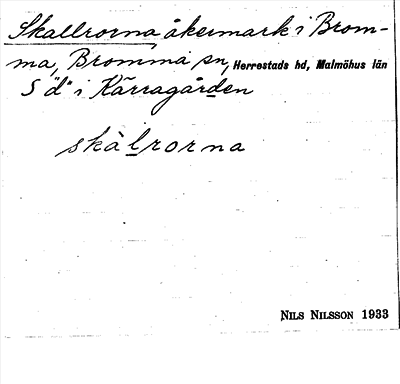 Skallrorna åkermark i Brom-
ma, Bromma sn, Herrestads hd, Malmöhus län
S "d" i Kärragården
skàlrorna
NILS NILSSON 1933